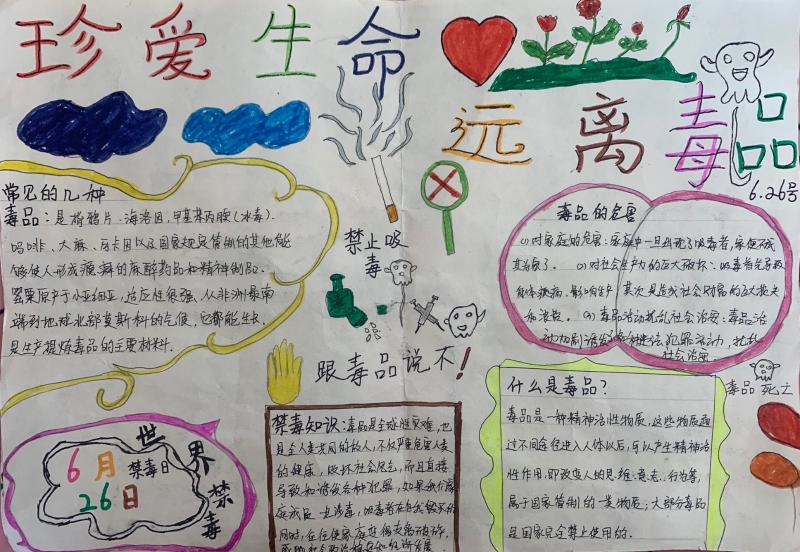 珍爱生命
远离毒品
6.26号
常见的几种
毒品：是指鸦片、海洛因、甲基苯丙胺(冰毒)、
吗啡、大麻、可卡因以及国家规定管制的其他能
够使人形成瘾癖的麻醉药品和精神制品。
罂粟原产于小亚细亚，适应性很强，从非洲最南
端到地球北部莫斯科的气候，它都能生长
是生产提炼毒品的主要材料。
禁止吸
毒
跟毒品说不!
毒品的危害
(1)对家庭的危害：家庭中一旦出现了吸毒者，家便不成
其为家了。 (2)对社会生产力的巨大破坏：吸毒首先导致
身体疾病，影响生产 其次是造成社会财富的巨大损失
和浪费。(3)毒品活动扰乱社会治安：毒品活
动加剧诱发了各种违法犯罪活动，扰乱
社会治安
毒品 死亡
世界禁毒
6月
26日
禁毒日
禁毒知识：毒品是全球性灾难，也
是全人类共同的敌人，不仅严重危害人类
的健康，破坏社会风气，而且直接
导致和诱发各种犯罪，如果我们家
庭成员一旦涉毒，吸毒者在自我毁灭的
同时，
什么是毒品?
毒品是一种精神活性物质，这些物质通
过不同途径进入人体以后，可以产生精神活
性作用，即改变人的思维、意志、行为等，
属于国家管制的一类物质；大部分毒品
是国家完全禁止使用的。